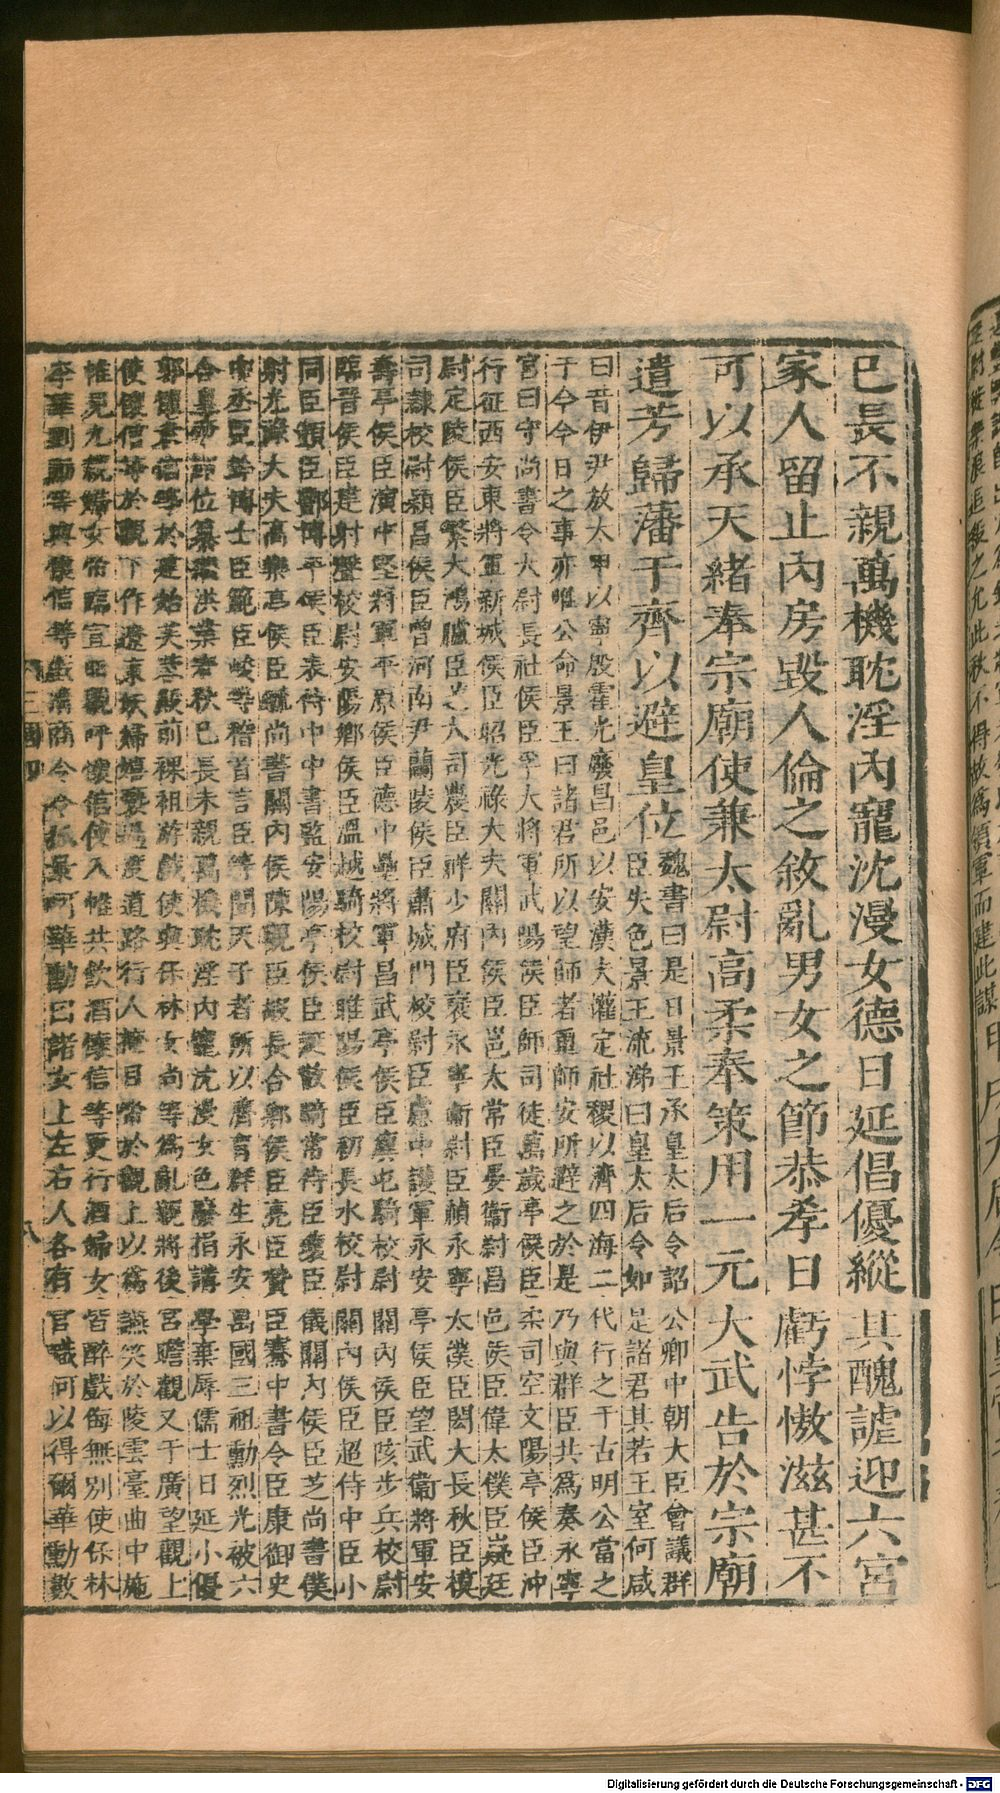 已長不親萬機耽淫內寵沈漫女德日延倡優縱其醜謔迎六宮
家人留止內房毀人倫之敘亂男女之節恭孝日虧悖慠滋甚不
可以承天緒奉宗廟使兼太尉高柔奉策用一元大武告於宗廟
遣芳歸藩于齊以避皇位
魏書曰是日景王承皇太后令詔公卿中朝大臣會議群
臣失色景王流涕曰皇太后令如是諸君其若王室何咸
曰昔伊尹放太甲以寧殷霍光廢昌邑以安漢夫權定社稷以濟四海二代行之于古明公當之
于今今日之事亦唯公命景王曰諸君所以望師者重師安所避之於是乃與群臣共爲奏永寧
宮曰守尚書令太尉長社侯臣孚大將軍武陽侯臣師司徒萬歲亭侯臣柔司空文陽亭侯臣沖
行征西安東將軍新城侯臣昭光祿大夫關內侯臣邕太常臣晏衞尉昌邑侯臣偉太僕臣嶷廷
尉定陵侯臣繁大鴻臚臣芝大司農臣祥少府臣袤永寧衞尉臣禎永寧太僕臣閎大長秋臣模
司隸校尉潁昌侯臣曾河南尹蘭陵侯臣肅城門校尉臣慮中護軍永安亭侯臣望武衞將軍安
壽亭侯臣演中堅將軍平原侯臣德中壘將軍昌武亭侯臣廙屯騎校尉關內侯臣陔步兵校尉
臨晉侯臣建射聲校尉安陽鄉侯臣溫越騎校尉睢陽侯臣初長水校尉關內侯臣超侍中臣小
同臣顗臣酆博平侯臣表侍中中書監安陽亭侯臣誕散騎常侍臣瓌臣儀關內侯臣芝尚書僕
射光祿大夫高樂亭侯臣毓尚書關內侯陳觀臣嘏長合鄉侯臣亮臣贊臣騫中書令臣康御史
中丞臣鈐博士臣範臣峻等稽首言臣等聞天子者所以濟育群生永安萬國三祖勳烈光被六
合皇帝卽位纂繼洪業春秋已長未親萬機耽淫內寵沈漫女色廢捐講學棄辱儒士日延小優
郭懷袁信等於建始芙蓉殿前裸袒游戲使與保林女尚等爲亂親將後宮瞻觀又于廣望觀上
使懷信等於觀下作遼東妖婦嬉褻過度道路行人掩目帝於觀上以爲讌笑於陵雲臺曲中施
帷見九親婦女帝臨宣曲觀呼懷信使入帷共飲酒懷信等更行酒婦女皆醉戲侮無別使保林
李華劉勳等與懷信等戲清商令令狐景呵華勳曰諸女上左右人各有官職何以得爾華勳數
三國四
八
Digitalisierung gefördert durch die Deutsche Forschungsgemeinschaft - DFG